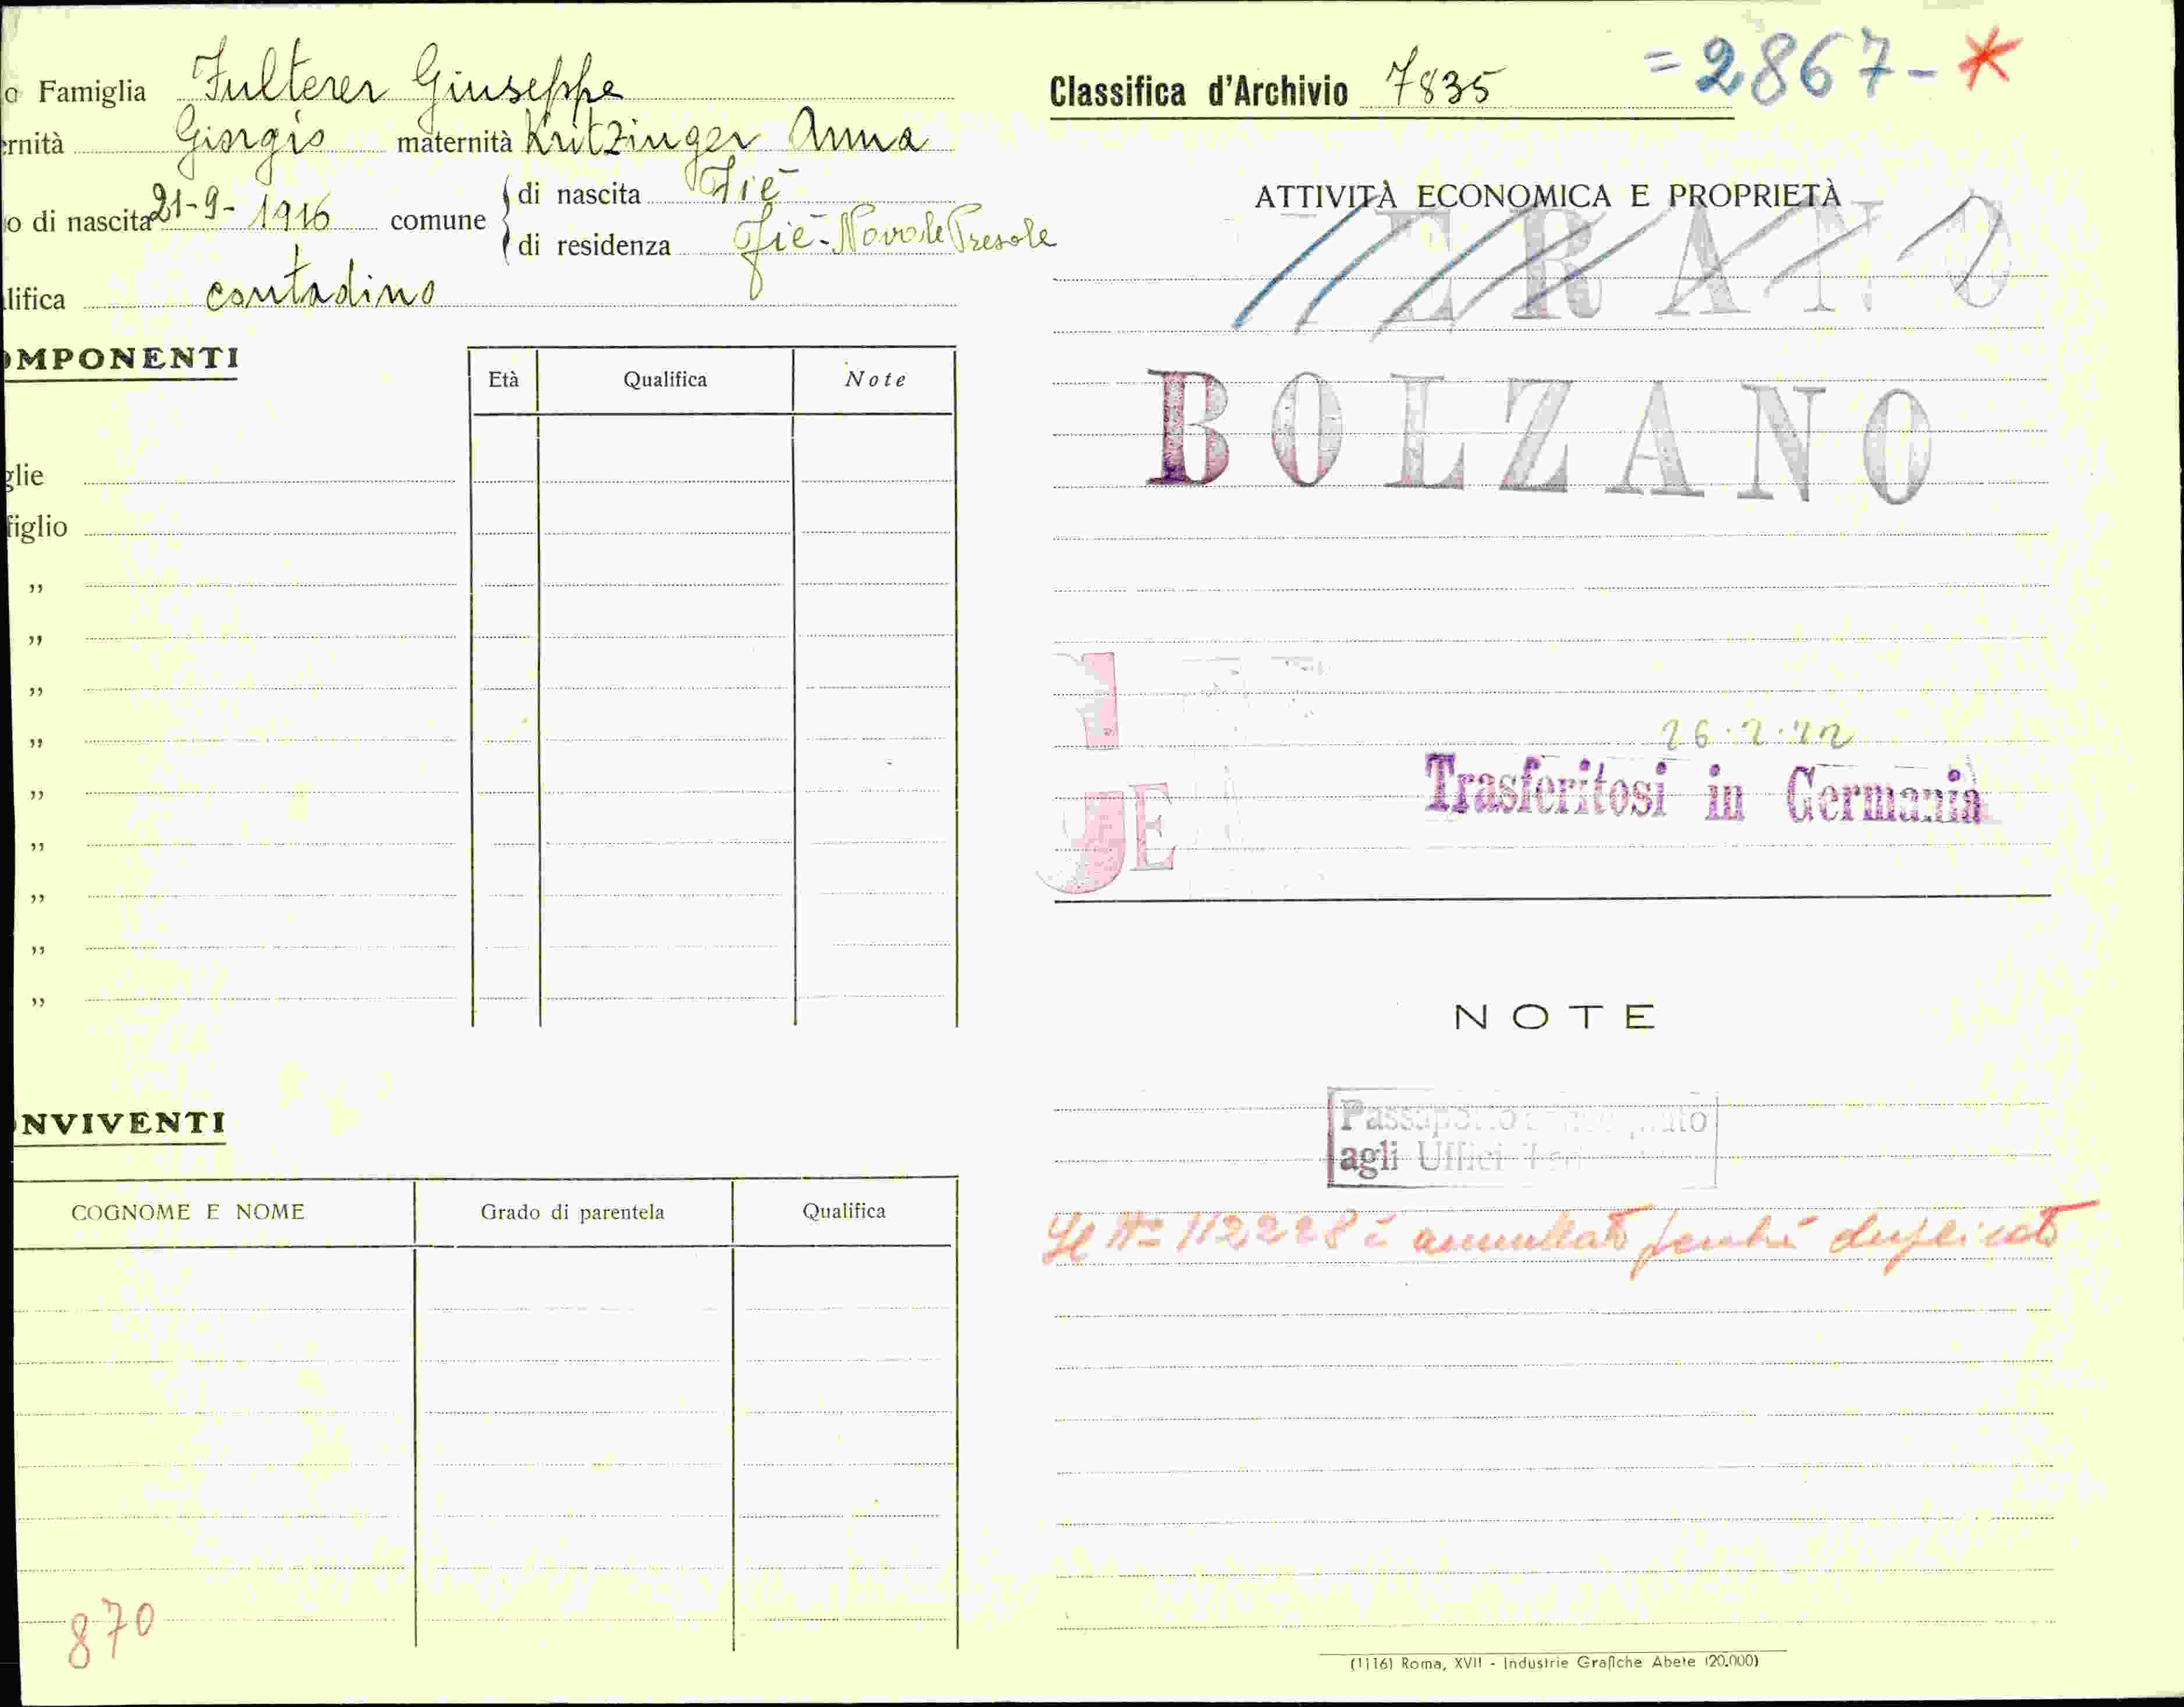 o Famiglia Fulterer Giuseppe
ernità Giorgio maternità Kritzinger Anna
o di nascita 21-9-1916 comune di nascita Fiè
di residenza Fiè-Novale Presole
lifica contadino
OMPONENTI
Età Qualifica Note
glie
figlio
"
"
"
"
"
"
"
"
"
NVIVENTI
COGNOME E NOME Grado di parentela Qualifica
870
Classifica d'Archivio 7835 = 2867- *
ATTIVITÀ ECONOMICA E PROPRIETÀ
ERANO
BOLZANO
JE
Trasferitosi in Germania
NOTE
agli Uffici
Il N= 112228 è annullato perché duplicato
(1116) Roma, XVII - Industrie Grafiche Abete (20.000)